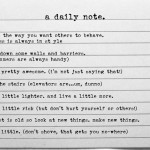 a daily note.
the way you want others to behave.
s is always in style
down some walls and barriers.
mmers are always handy)
pretty awesome. (i'm not just saying that)
the chairs (elevator are...um, dunno)
little lighter, and live a little more.
little risk (but don't hurt yourself or others!)
t is old so look at new things. make new things.
little. (don't shove, that gets you no-where)